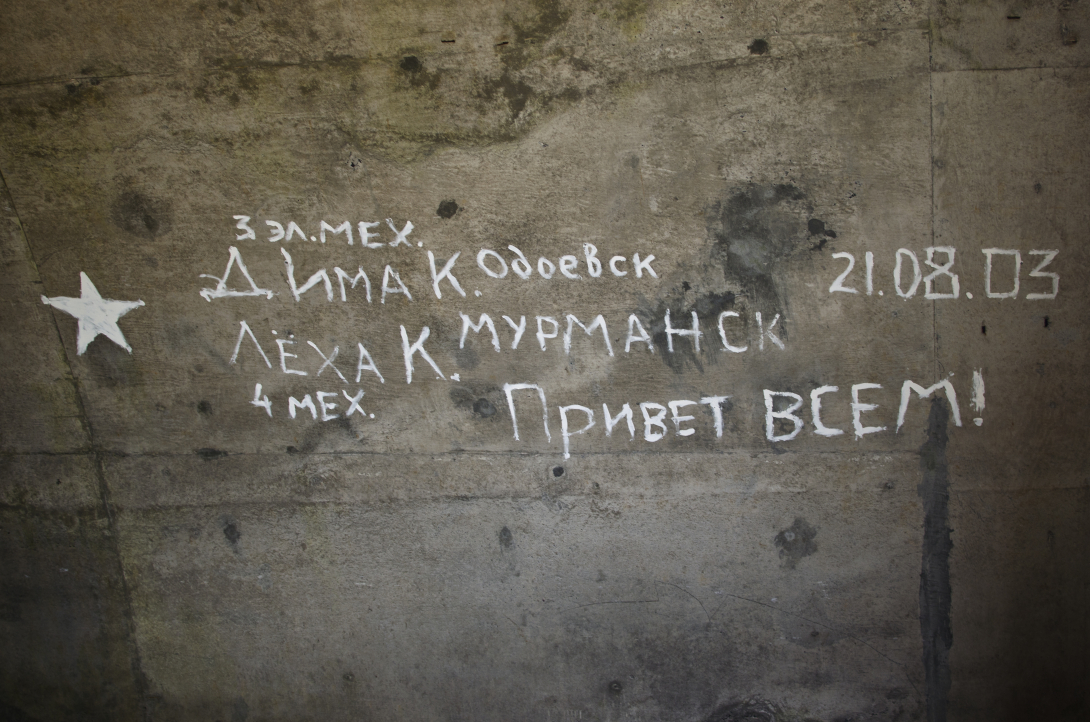 3 эл.МЕХ.
ДИМА К. Одоевск 21.08.03
ЛЁХА К. МУРМАНСК
4 МЕХ.
ПРИВЕТ ВСЕМ!